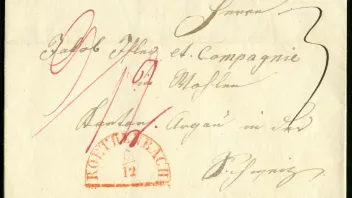 Herrn
Jakob Isler et Compagnie
in Wohlen
Canton Argau in der
Schweiz
3
ROETTENBACH
12